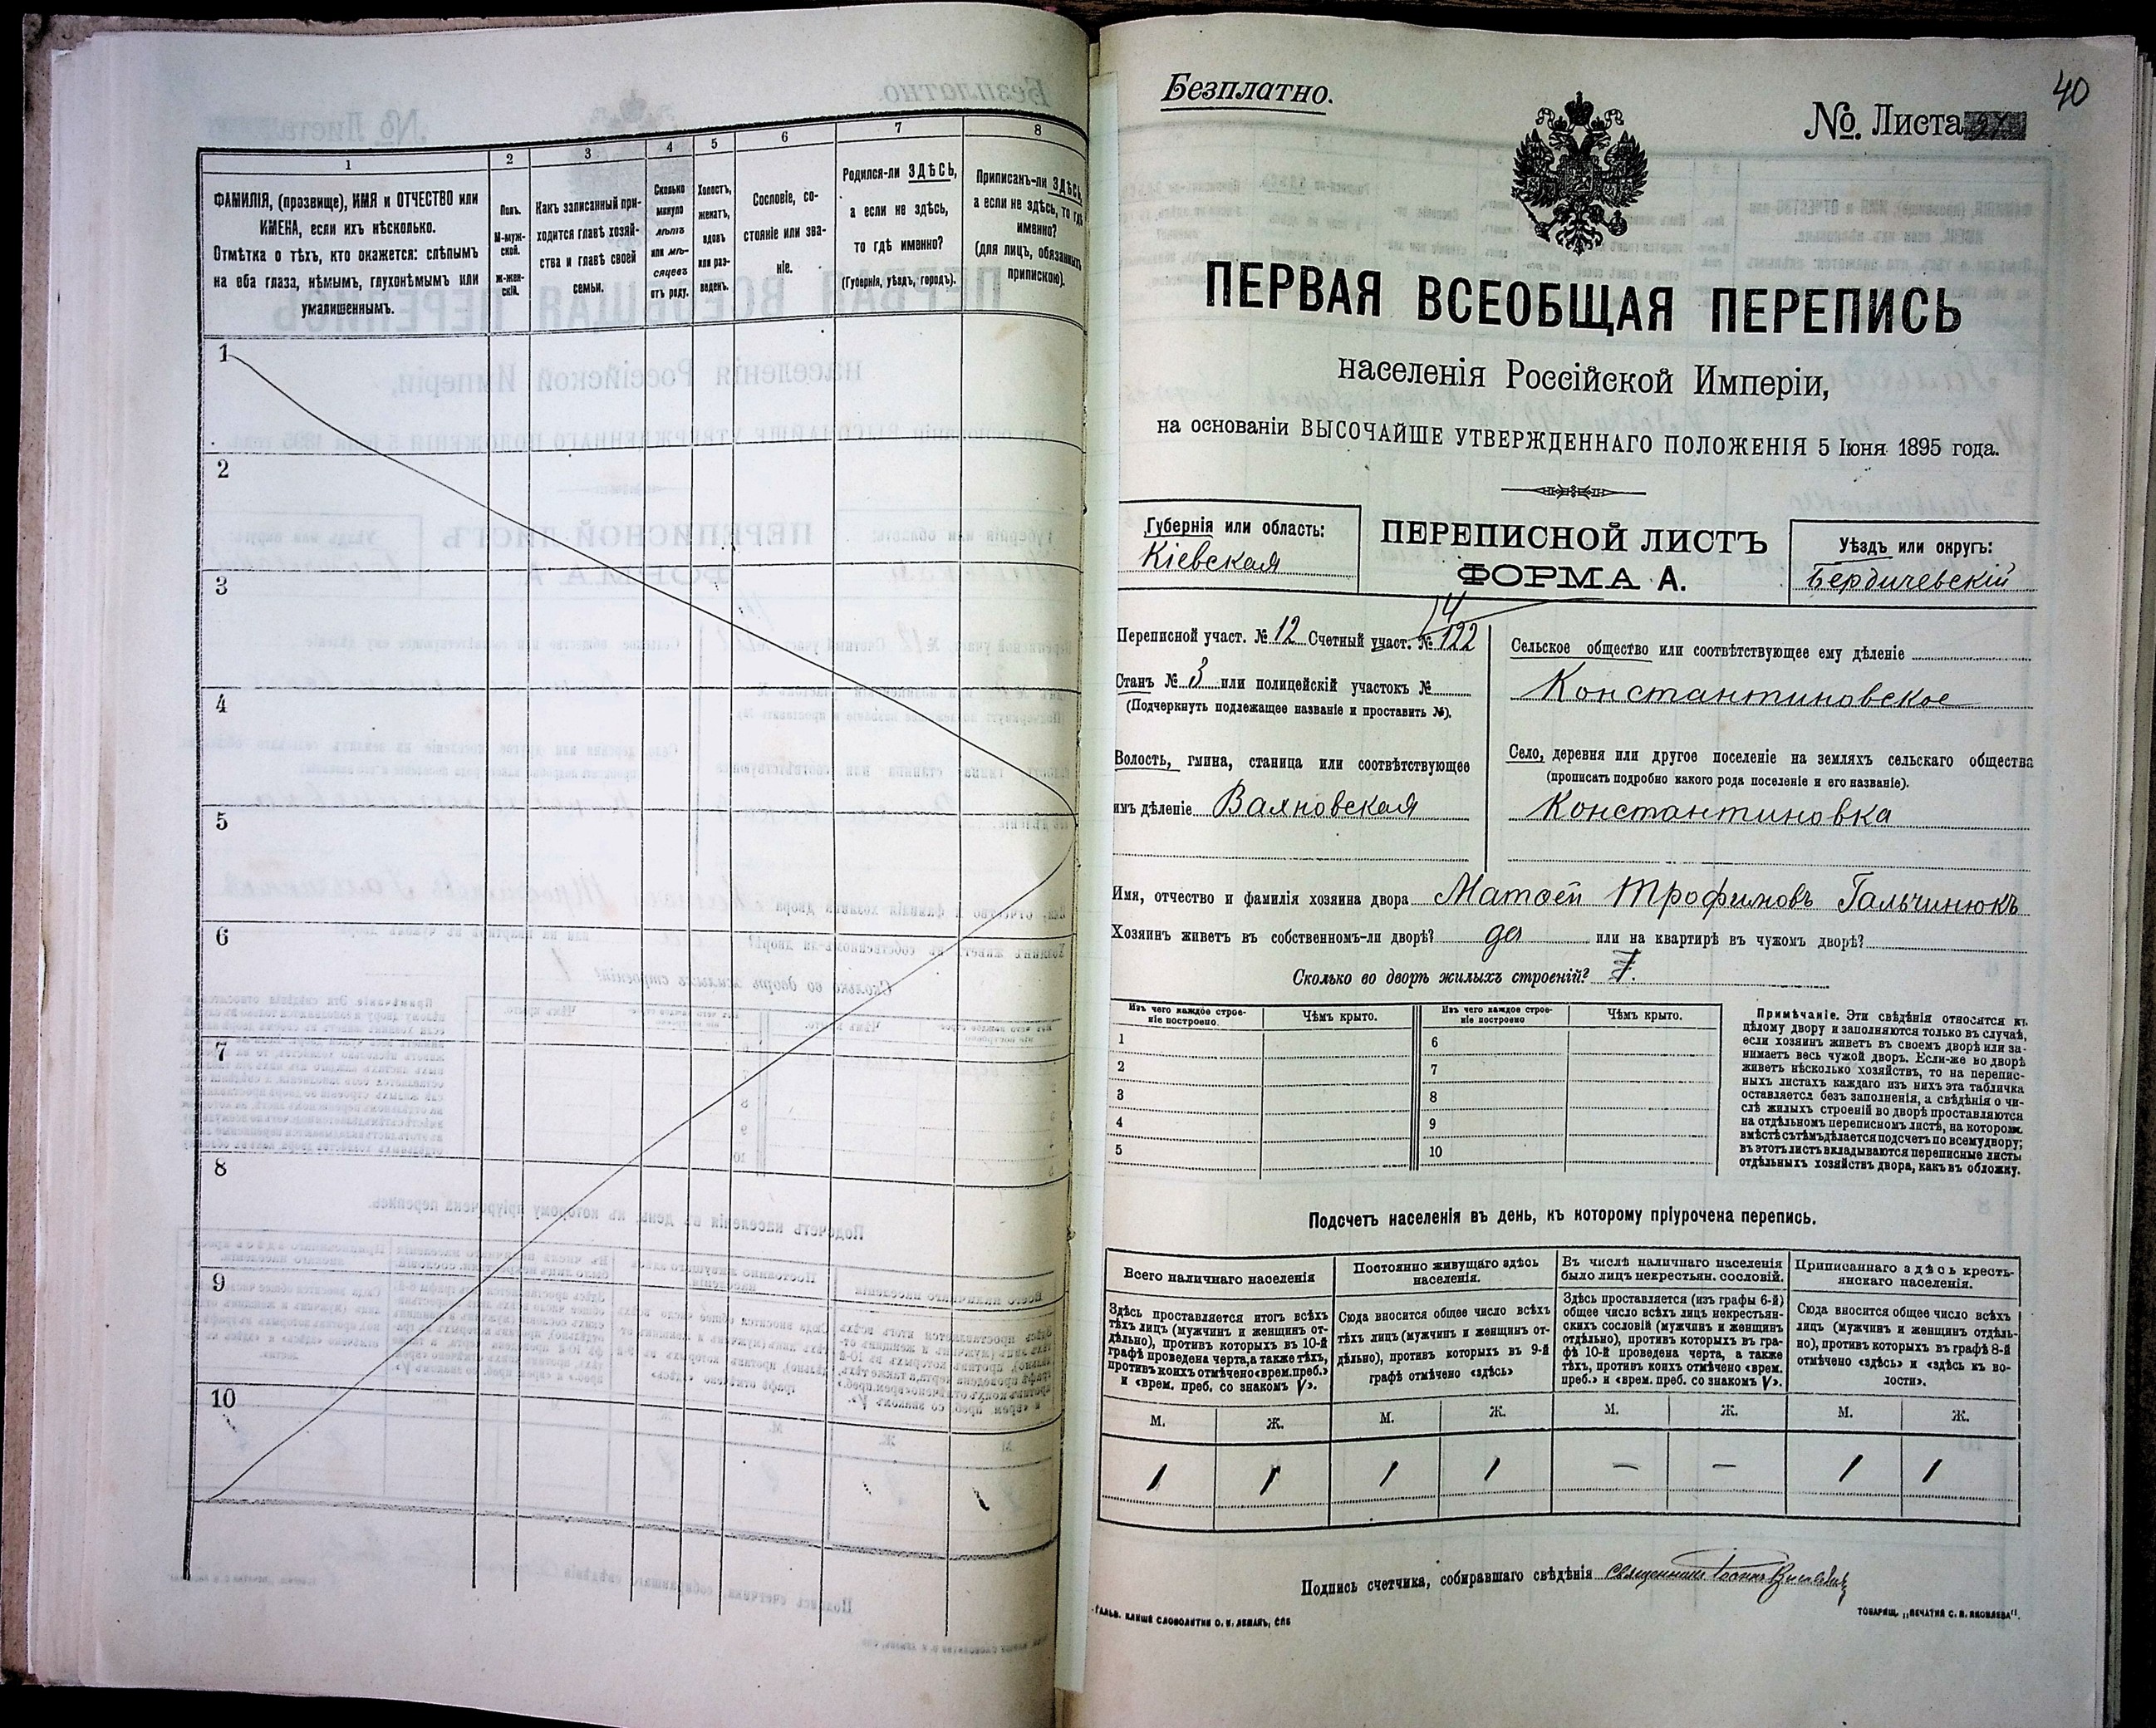 1 2 3 4 5 6 7 8
ФАМИЛІЯ, (прозвище), ИМЯ и ОТЧЕСТВО или
ИМЕНА, если ихъ нѣсколько.
Отмѣтка о тѣхъ, кто окажется: слѣпымъ
на оба глаза, нѣмымъ, глухонѣмымъ или
умалишеннымъ.
Полъ.
М-муж-
ской.
Ж-жен-
скій.
Какъ записанный при-
ходится главѣ хозяй-
ства и главѣ своей
семьи.
Сколько
минуло
лѣтъ
или мѣ-
сяцевъ
отъ роду.
Холостъ,
женатъ,
вдовъ
или раз-
веденъ.
Сословіе, со-
стояніе или зва-
ніе.
Родился-ли ЗДѢСЬ,
а если не здѣсь,
то гдѣ именно?
(Губернія, уѣздъ, городъ).
Приписанъ-ли ЗДѢСЬ,
а если не здѣсь, то гдѣ
именно?
(для лицъ, обязанныхъ
припискою).
1
2
3
4
5
6
7
8
9
10
40
Безплатно.
№ Листа
ПЕРВАЯ ВСЕОБЩАЯ ПЕРЕПИСЬ
населенія Россійской Имперіи,
на основаніи ВЫСОЧАЙШЕ УТВЕРЖДЕННАГО ПОЛОЖЕНІЯ 5 Іюня 1895 года.
Губернія или область:
Кіевская
ПЕРЕПИСНОЙ ЛИСТЪ
ФОРМА А.
Уѣздъ или округъ:
Бердичевскій
14
Переписной участ. № 12 Счетный участ. № 122
Станъ № 3 или полицейскій участокъ №
(Подчеркнуть подлежащее названіе и проставить №).
Волость, гмина, станица или соотвѣтствующее
имъ дѣленіе
Сельское общество или соотвѣтствующее ему дѣленіе
Константиновское
Село, деревня или другое поселеніе на земляхъ сельскаго общества
(прописать подробно какого рода поселеніе и его названіе).
Константиновка
Имя, отчество и фамилія хозяина двора Матѳей Трофимовъ Гальчинюкъ
Хозяинъ живетъ въ собственномъ-ли дворѣ? да или на квартирѣ въ чужомъ дворѣ?
Сколько во дворѣ жилыхъ строеній?
Изъ чего каждое строе-
ніе построено.
Чѣмъ крыто.
Изъ чего каждое строе-
ніе построено
Чѣмъ крыто.
1 6
2 7
3 8
4 9
5 10
Примѣчаніе. Эти свѣдѣнія относятся къ
цѣлому двору и заполняются только въ случаѣ,
если хозяин живетъ въ своемъ дворѣ или за-
нимаетъ весь чужой дворъ. Если-же во дворѣ
живетъ нѣсколько хозяйствъ, то на перепис-
ныхъ листахъ каждаго изъ нихъ эта табличка
оставляется безъ заполненія, а свѣдѣнія о чи-
слѣ жилыхъ строеній во дворѣ проставляются
на отдѣльномъ переписномъ листѣ, на которомъ
вмѣстѣ съ тѣмъ дѣлается подсчетъ по всему двору;
въ этотъ листъ вкладываются переписные листы
отдѣльныхъ хозяйствъ двора, какъ въ обложку.
Подсчетъ населенія въ день, къ которому пріурочена перепись.
Всего наличнаго населенія
Здѣсь проставляется итогъ всѣхъ
тѣхъ лицъ (мужчин и женщинъ от-
дѣльно), противъ которыхъ въ 10-й
графѣ проведена черта, а также тѣхъ,
противъ коихъ отмѣчено «врем. преб.»
и «врем. преб. со знакомъ V».
Постоянно живущаго здѣсь
населенія.
Сюда вносится общее число всѣхъ
тѣхъ лицъ (мужчинъ и женщинъ от-
дѣльно), противъ которыхъ въ 9-й
графѣ отмѣчено «здѣсь»
Въ числѣ наличнаго населенія
было лицъ некрестьян. сословій.
Здѣсь проставляется (изъ графы 6-й)
общее число всѣхъ лицъ некрестьян-
скихъ сословій (мужчинъ и женщинъ
отдѣльно), противъ которыхъ въ гра-
фѣ 10-й проведена черта, а также
тѣхъ, противъ коихъ отмѣчено «врем.
преб.» и «врем. преб. со знакомъ V».
Приписаннаго здѣсь кресть-
янскаго населенія.
Сюда вносится общее число всѣхъ
лицъ (мужчинъ и женщинъ отдѣль-
но), противъ которыхъ въ графѣ 8-й
отмѣчено «здѣсь» и «здѣсь къ во-
лости».
М. Ж. М. Ж. М. Ж. М. Ж.
1 1 1 1 — — 1 1
Подпись счетчика, собиравшаго свѣдѣнія Священникъ Іоаннъ
ГАЛЬВ. КЛИШЕ СЛОВОЛИТНИ О. И. ЛЕМАНЪ, СПБ
ТОВАРИЩ. „ПЕЧАТНЯ С. П. ЯКОВЛЕВА".